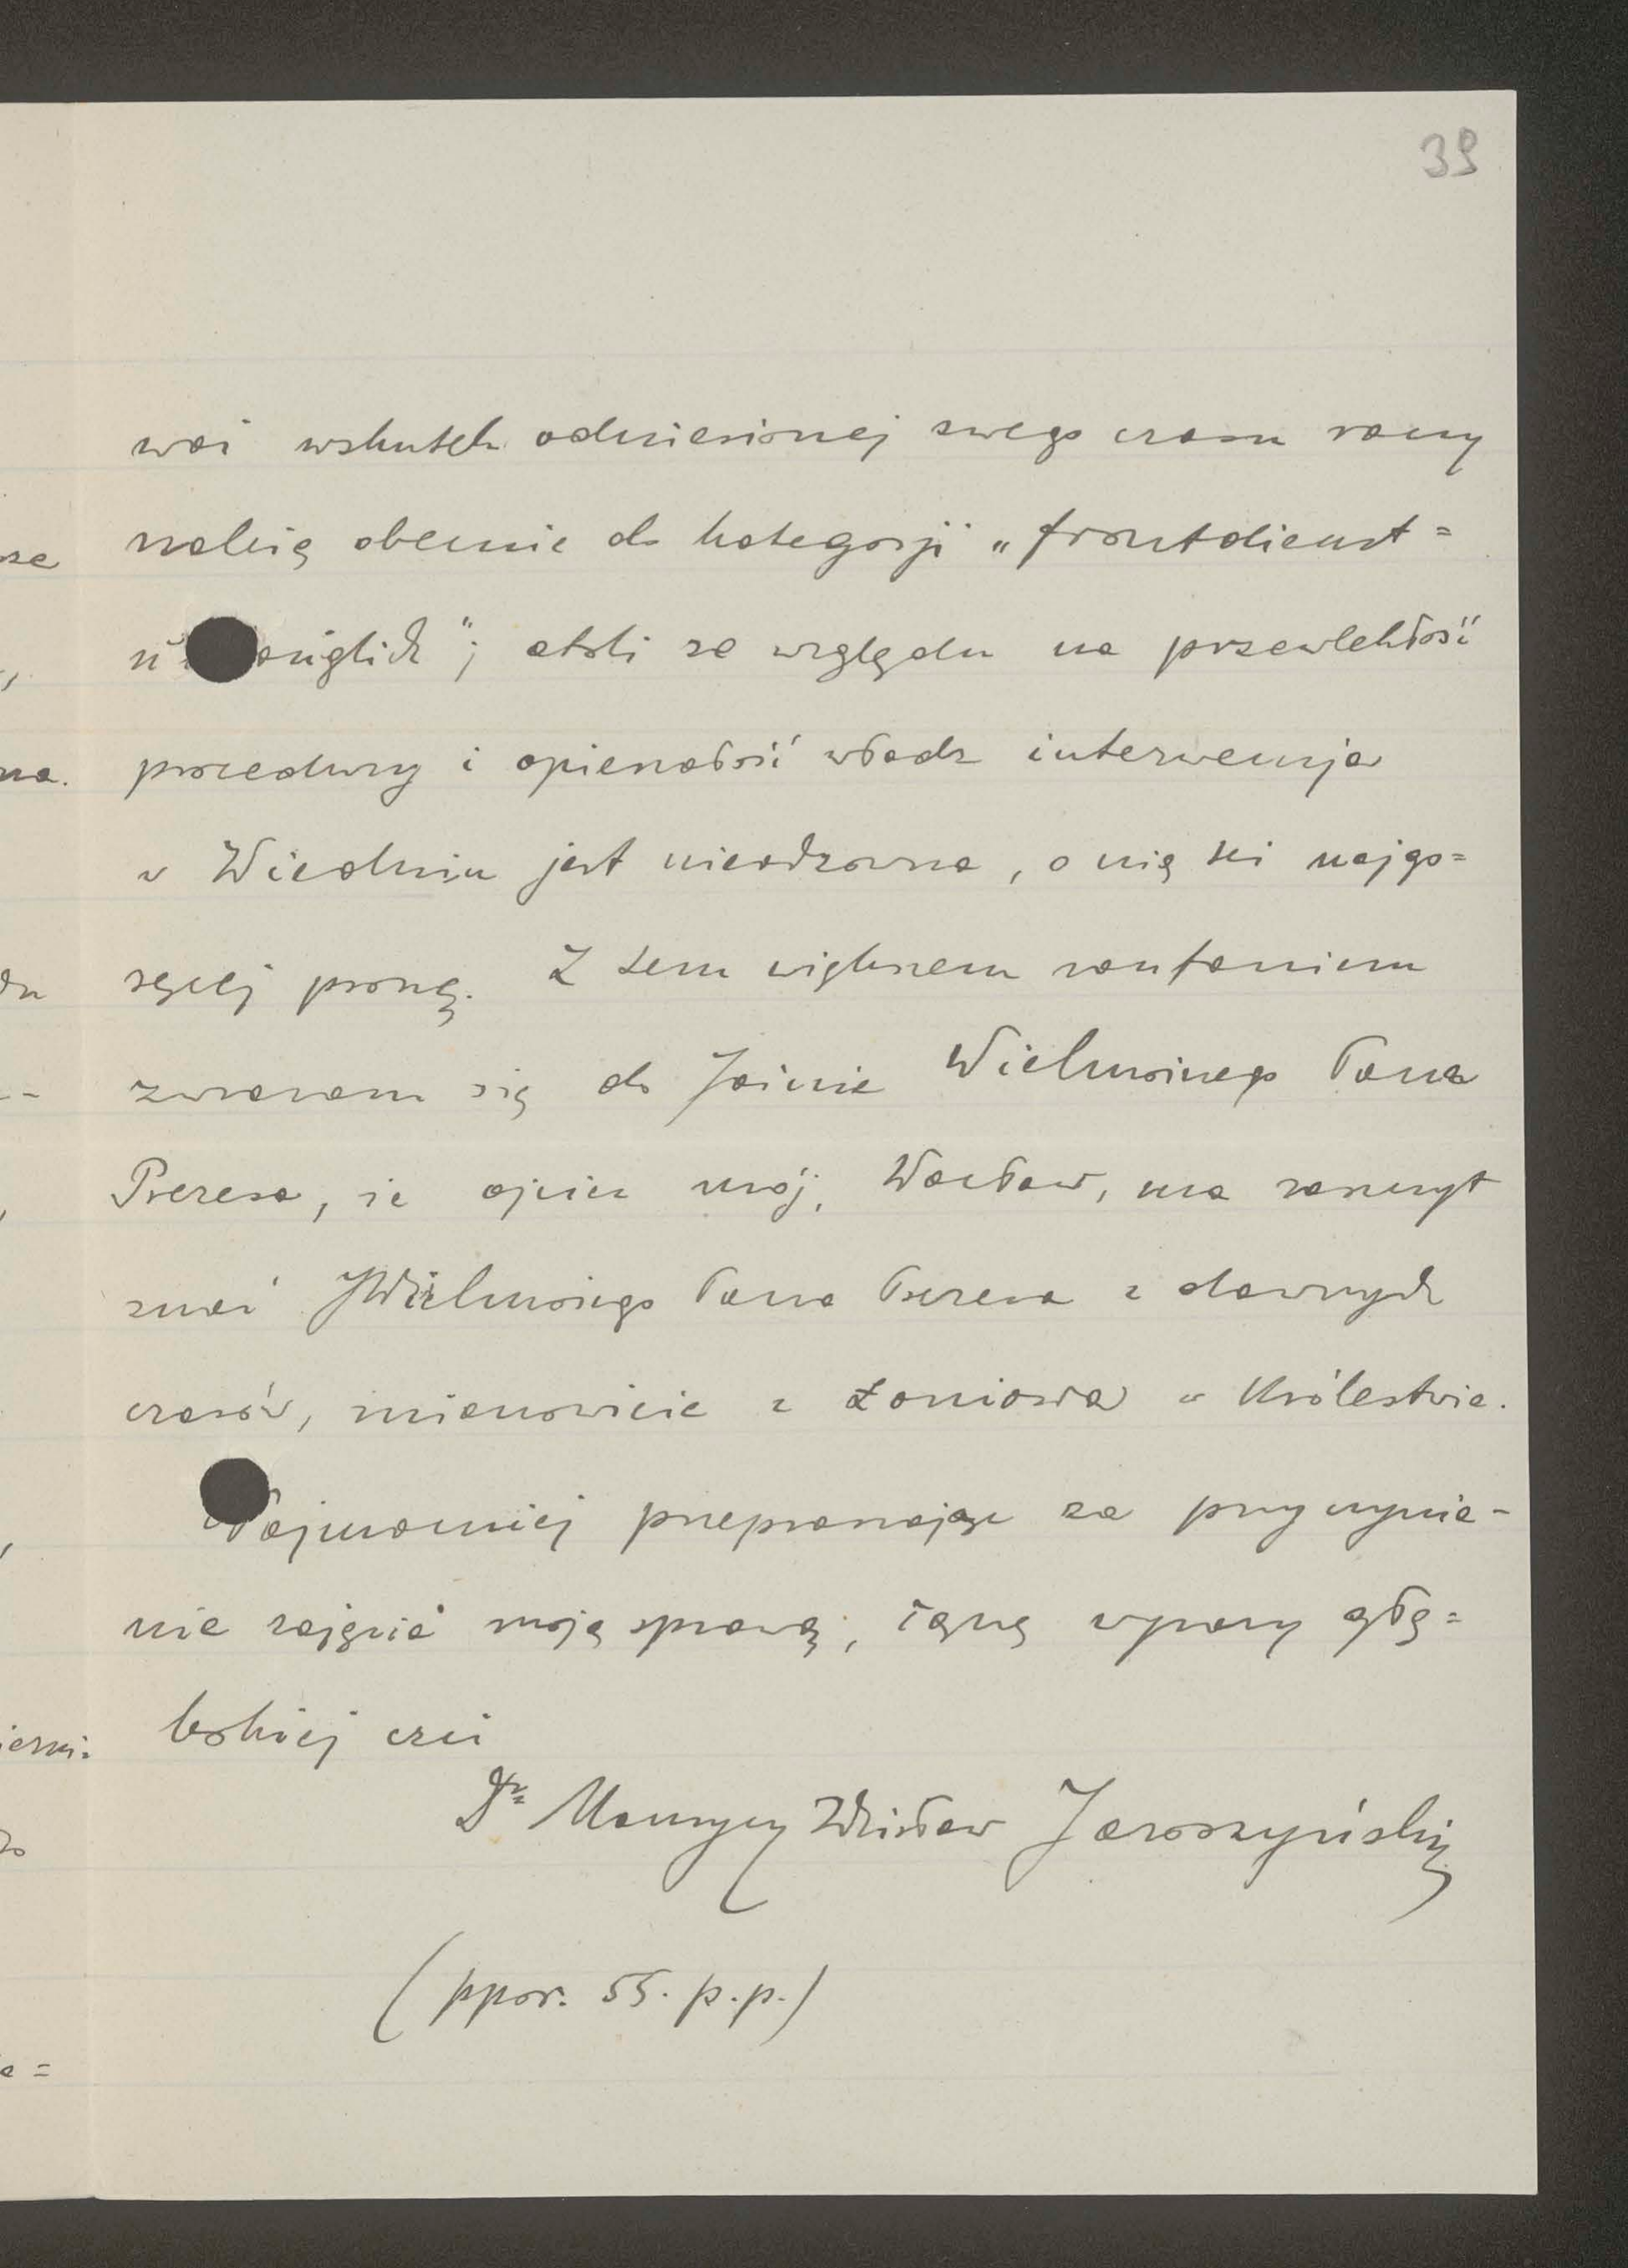 39
woi wskutek odniesionej swego czasu rany
należę obecnie do kategorji „frontdienst=
un tauglich"; atoli ze względu na przewlekłość
procedury i opieszałość władz interwencja
w Wiedniu jest nieodzowna, o nią też najgo=
ręcej proszę. Z tem większem zaufaniem
zwracam się do Jaśnie Wielmożnego Pana
Prezesa, że ojciec mój, Wacław, ma zaszczyt
znać JWielmożnego Pana Prezesa z dawnych
czasów, mianowicie z Łoniowa w Królestwie.
Najmocniej przepraszając za przyczynie-
nie zajęcia moją sprawą, łączę wyrazy głę=
bokiej czci
Dr Maurycy Zdzisław Jaroszyński
(ppor. 55. p.p.)